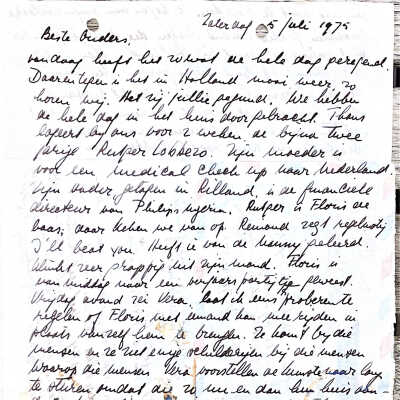 Zaterdag 5 juli 1975
Beste Ouders,
vandaag heeft het zowat de hele dag geregend.
Daarentegen is het in Holland mooi weer, zo
horen wij. Het zij jullie gegund. We hebben
de hele dag in het huis doorgebracht. Thans
logeert bij ons voor 2 weken de bijna twee
jarige Rutger Lobbezo. Zijn moeder is
voor een medical check up naar Nederland
Zijn vader, geboren in Rilland, is de financiele
directeur van Philips Nigeria. Rutger is Floris de
baas; daar keken we van op. Remond zegt regelmatig
I'll beat you. Heeft ie van de nanny geleerd.
Klinkt zeer grappig uit zijn mond. Floris is
vanmiddag naar een verjaarspartijtje geweest.
Vrijdag avond zei Vera, laat ik eens proberen te
regelen of Floris met iemand kan mee rijden in
plaats van zelf hem te brengen. Ze kent bij die
mensen en ze ziet enige schilderijen bij die mensen
waarop die mensen Vera voorstellen de
te sturen omdat die zo nu en dan hun huis aan-